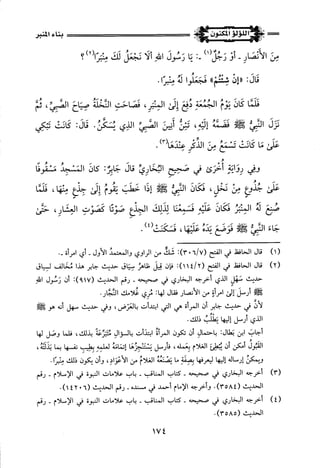 اللؤلؤ المكنون
بناء المنبر
مِنَ الأَنْصَارِ ـ أَوْ رَجُلٌ(١) ـ: يَا رَسُولَ اللهِ أَلَا نَجْعَلُ لَكَ مِنْبَرًا(٢)؟
قَالَ: «إِنْ شِئْتُمْ» فَجَعَلُوا لَهُ مِنْبَرًا.
فَلَمَّا كَانَ يَوْمُ الجُمُعَةِ دُفِعَ إِلَى المِنْبَرِ، فَصَاحَتِ النَّخْلَةُ صِيَاحَ الصَّبِيِّ، ثُمَّ
نَزَلَ النَّبِيُّ ﷺ فَضَمَّهُ إِلَيْهِ، تَئِنُّ أَنِينَ الصَّبِيِّ الذِي يُسَكَّنُ. قَالَ: كَانَتْ تَبْكِي
عَلَى مَا كَانَتْ تَسْمَعُ مِنَ الذِّكْرِ عِنْدَهَا(٣).
وفي رِوَايَةٍ أُخْرَى في صَحِيحِ البُخَارِيِّ قَالَ جَابِرٌ: كَانَ المَسْجِدُ مَسْقُوفًا
عَلَى جُذُوعٍ مِنْ نَخْلٍ، فَكَانَ النَّبِيُّ ﷺ إِذَا خَطَبَ يَقُومُ إِلَى جِذْعٍ مِنْهَا، فَلَمَّا
صُنِعَ لَهُ المِنْبَرُ فَكَانَ عَلَيْهِ فَسَمِعْنَا لِذَلِكَ الجِذْعِ صَوْتًا كَصَوْتِ العِشَارِ، حَتَّى
جَاءَ النَّبِيُّ ﷺ فَوَضَعَ يَدَهُ عَلَيْهَا، فَسَكَنَتْ(٤).
(١) قال الحافظ في الفتح (٣٠٦/٧): شَكٌّ من الراوي والمعتمدُ الأول ـ أي امرأة ـ.
(٢) قال الحافظ في الفتح (١١٤/٢): فإن قيل ظاهرُ سِيَاق حديث جابر هذا مُخَالف لسِيَاق
حديث سَهْلٍ الذي أخرجه البخاري في صحيحه ـ رقم الحديث (٩١٧): أن رسول الله
ﷺ أرسل إلى امرأة من الأنصار فقال لها: مُرِي غُلامَك النجَّار.
لأنَّ في حديث جابر أن المرأة هي التي ابتدأَت بالعَرْض، وفي حديث سهل أنه هو ﷺ
الذي أرسل إليها يَطْلُبُ ذلك.
أجاب ابن بَطَّال: باحتمالِ أن تكون المرأة ابتدأت بالسؤال مُتَبَرِّعَة بذلك، فلما وصل لها
القَبُولُ أمكن أن يُبْطِئَ الغلام بعمله، فأرسل يَسْتَنْجِزُهَا إتمامَهُ لعلمِهِ بطِيبِ نفسها بما بَذَلَتْهُ،
ويمكن إرساله إليها ليعرفها بصِفَةِ ما يصنَعُهُ الغلامُ من الأعوَادِ، وأن يكون ذلك مِنْبَرًا.
(٣) أخرجه البخاري في صحيحه ـ كتاب المناقب ـ باب علامات النبوة في الإسلام ـ رقم
الحديث (٣٥٨٤)، وأخرجه الإمام أحمد في مسنده ـ رقم الحديث (١٤٢٠٦).
(٤) أخرجه البخاري في صحيحه ـ كتاب المناقب ـ باب علامات النبوة في الإسلام ـ رقم
الحديث (٣٥٨٥)
١٧٤